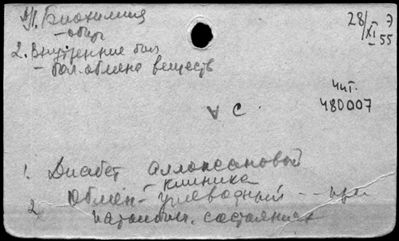 1. Биохимия
- общ.
2. Внутренние бол.
- бол. обмена веществ
28/XI-55
Э
Чит.
480007
А С.
1. Диабет аллоксановой
- клиника
2. Обмен углеводный -- при
патологич. состояниях